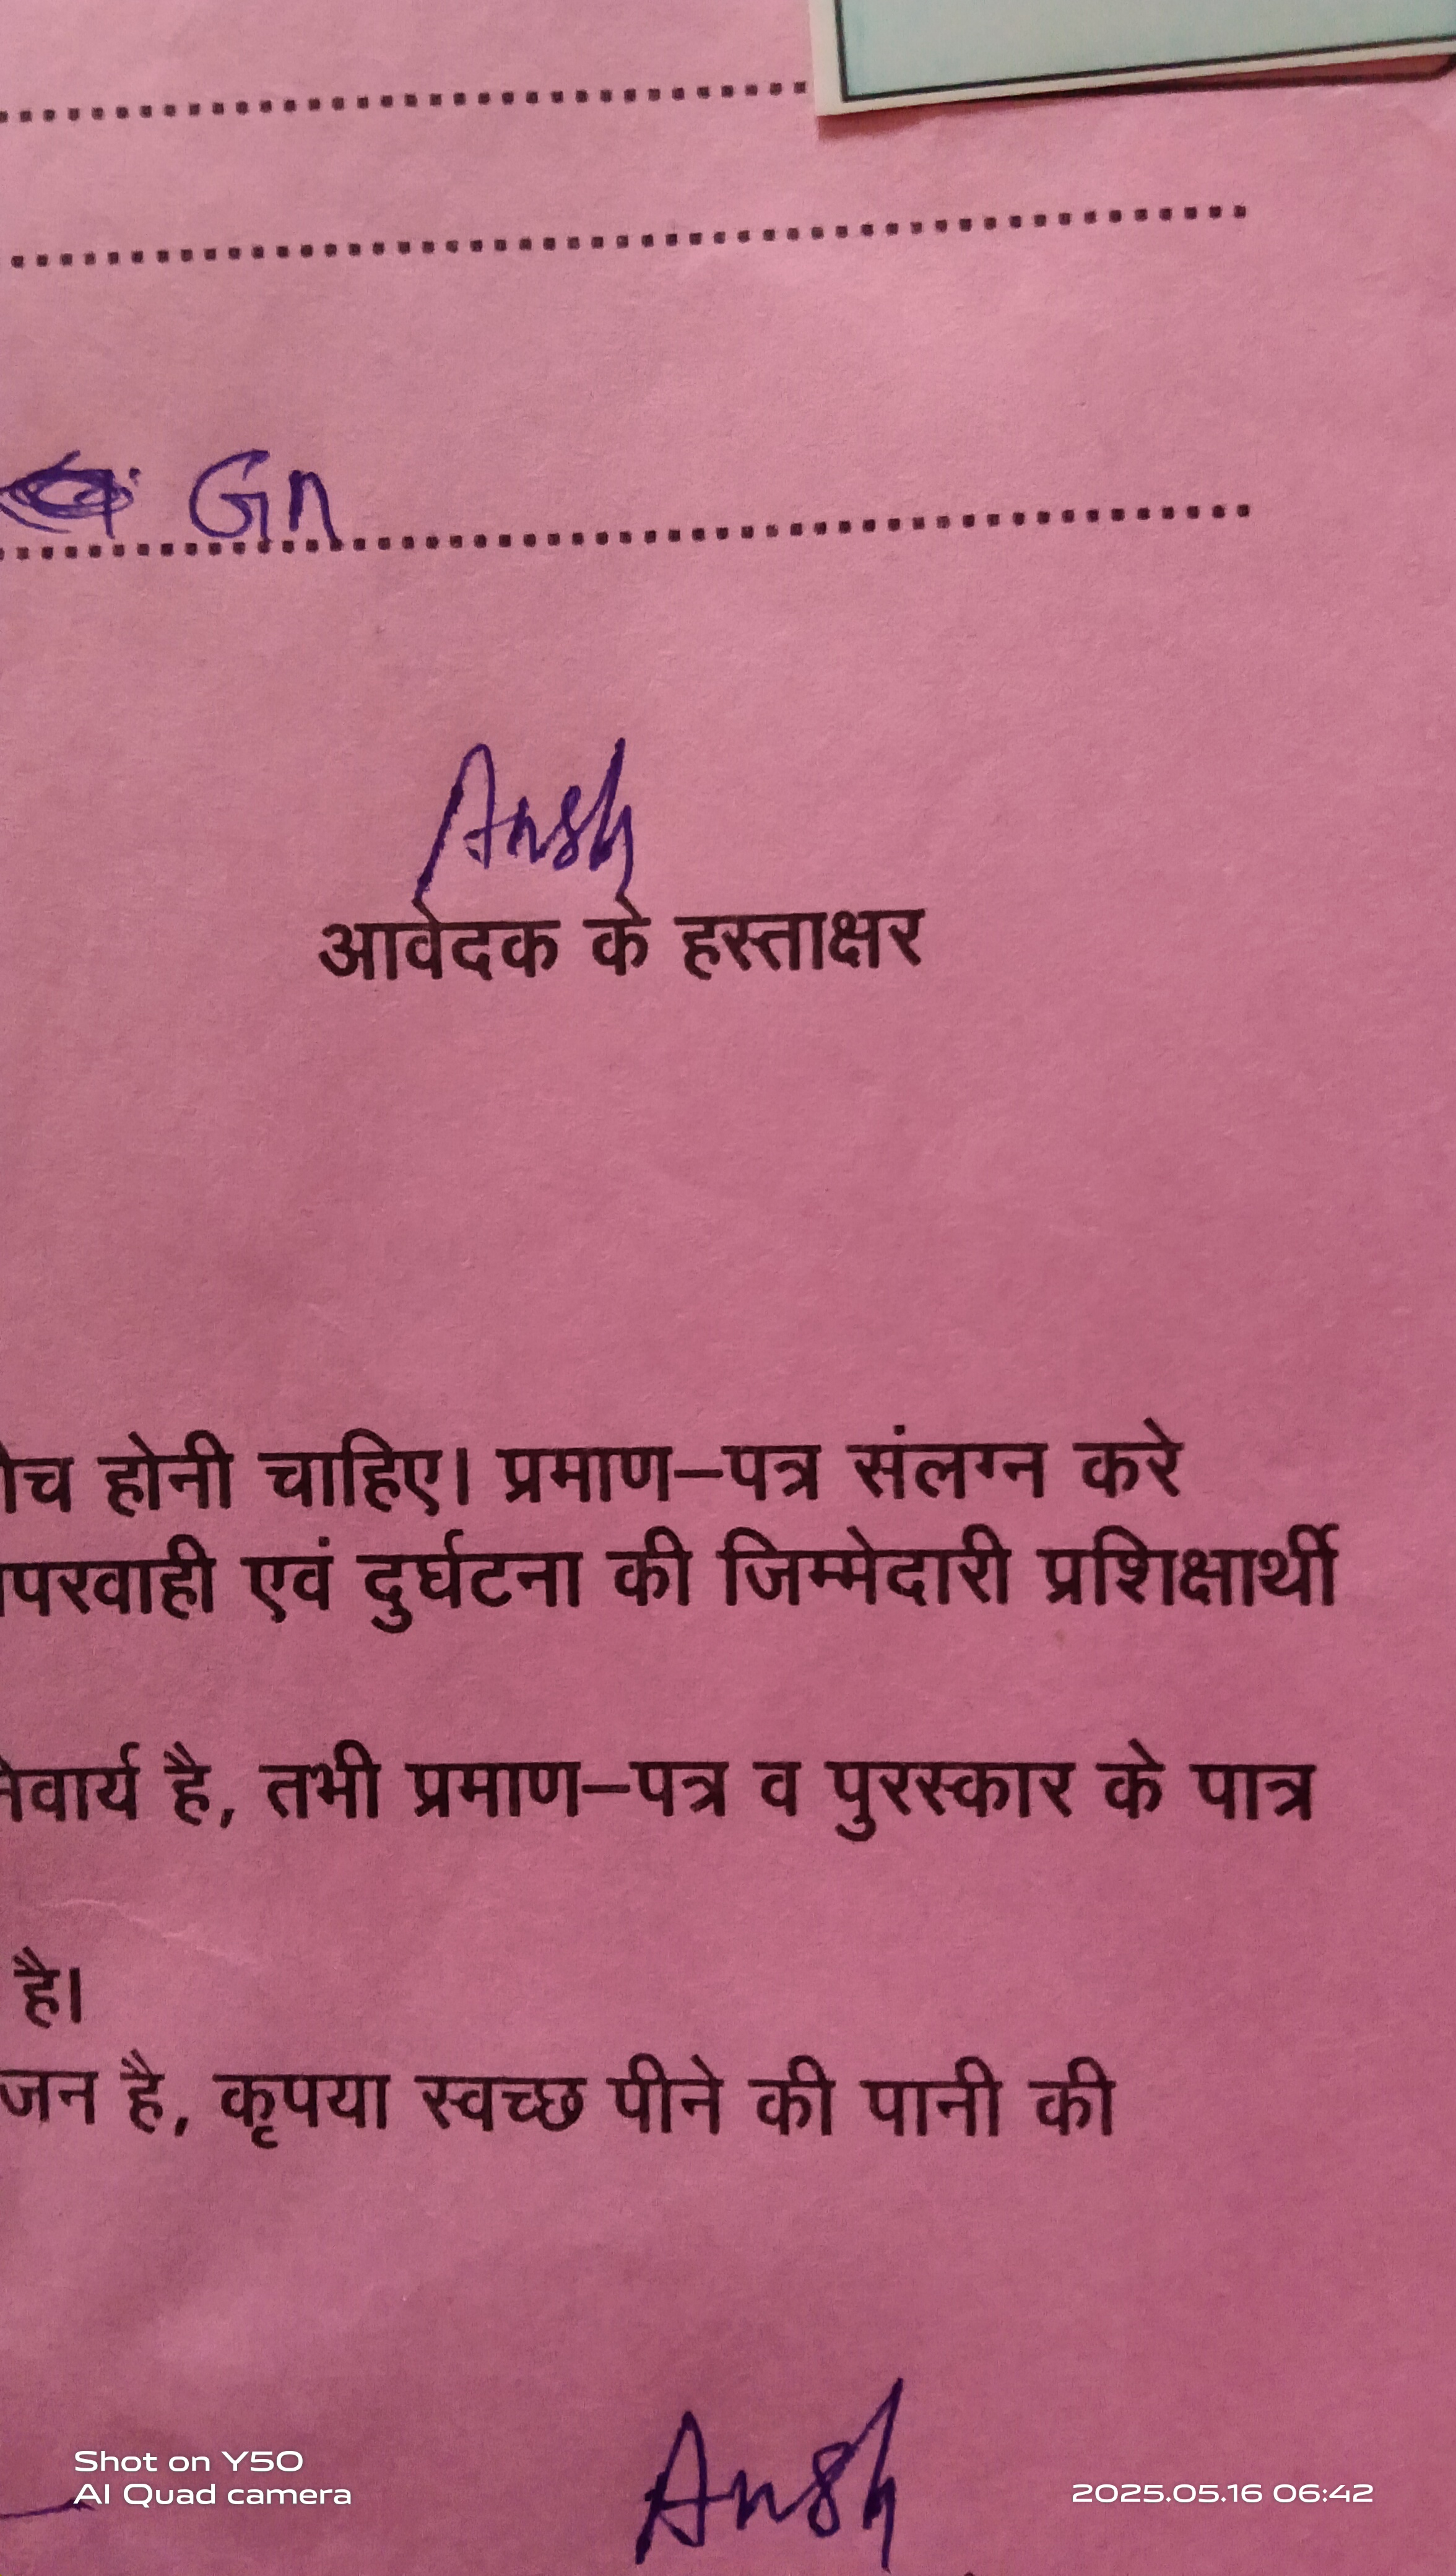 Gn
Ansh
आवेदक के हस्ताक्षर
होनी चाहिए। प्रमाण–पत्र संलग्न करे
एवं दुर्घटना की जिम्मेदारी प्रशिक्षार्थी
है, तभी प्रमाण–पत्र व पुरस्कार के पात्र
है।
है, कृपया स्वच्छ पीने की पानी की
Ansh
Shot on Y50
AI Quad camera
2025.05.16 06:42